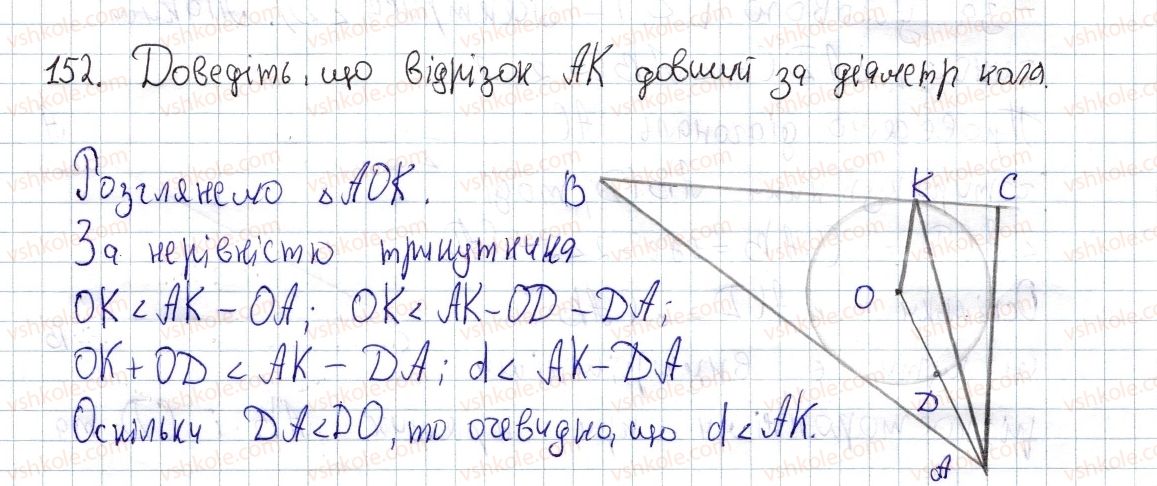 152. Доведіть, що відрізок АК довший за діаметр кола.
Розглянемо △АОК.
За нерівністю трикутника
ОК < АК – ОА; ОК < АК – OD – DA;
ОК + OD < АК – DA; d < АК – DA
Оскільки DA < DO, то очевидно, що d < АК.
B
K
C
O
D
A
vshkole.com